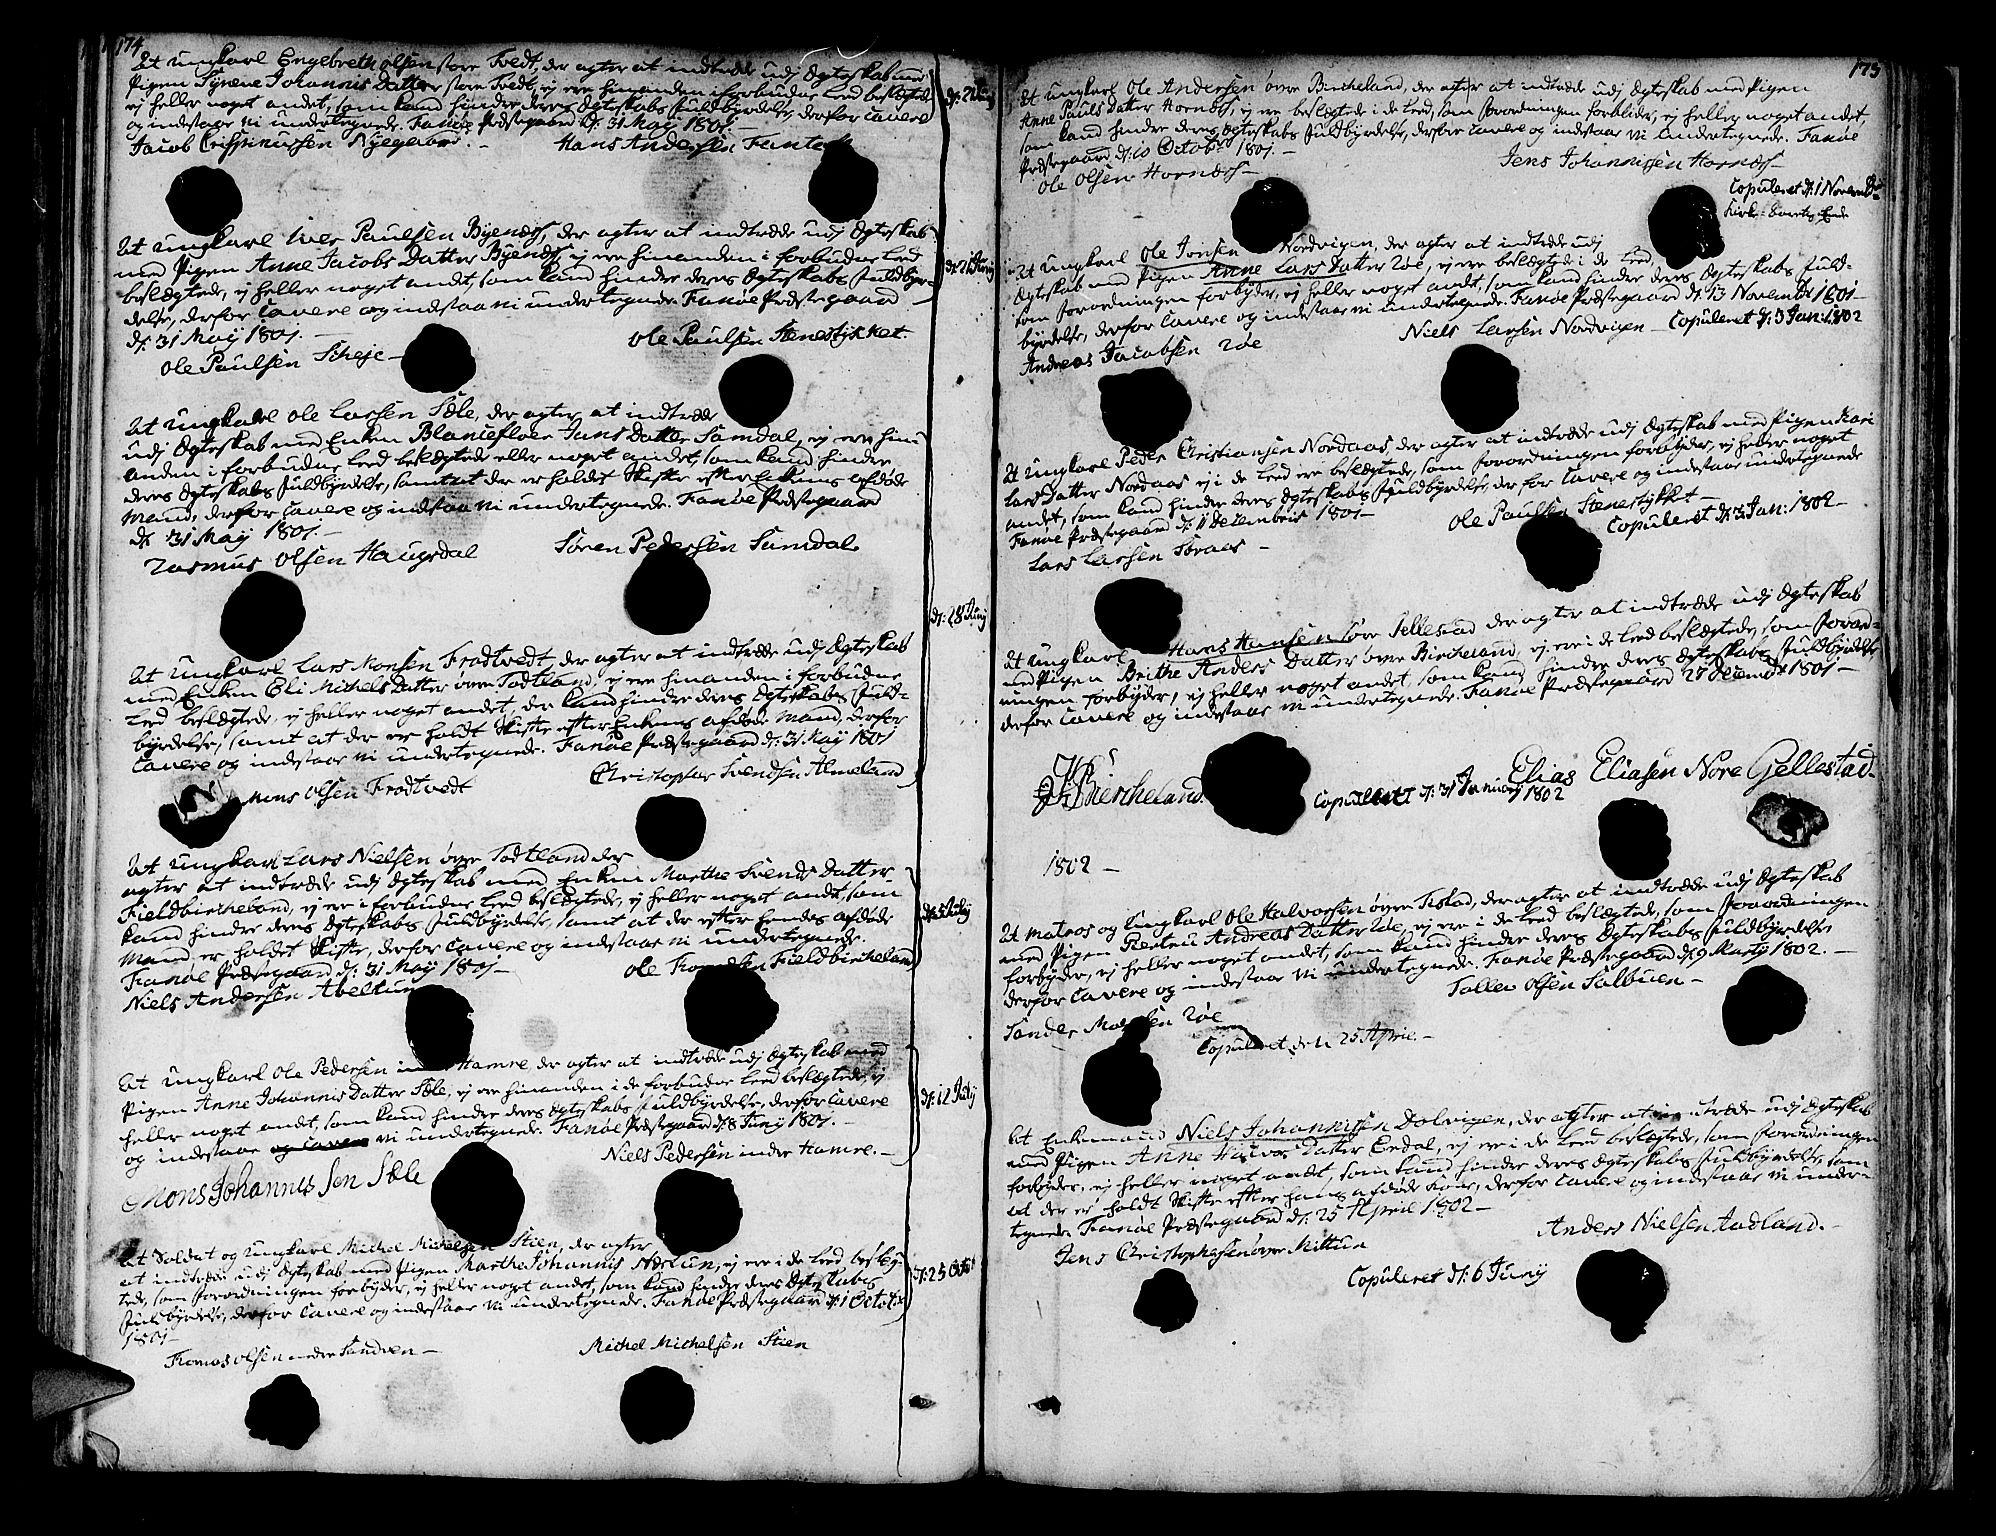 174
At Ungkarl Engebreth olsen store Tvedt, der agter at indtræde udj Ægteskab med
Pigen Syneve Johannis Datter store Tvedt, ej ere hinanden i forbudne Leed beslegtede
ej heller noget andet, som kand hindre deres Ægteskabs Fuldbyrdelse, derfor Cavere
og indestaar vi undertegnede. Fanøe Præstegaard d: 31 May 1801. -
Jacob Nyegaard. - Hans Andersen
d: 21 Juny
At Ungkarl Iver Paulsen Byenæs, der agter at indtræde udj Ægteskab
med Pigen Anne Jacobs Datter Byenæs, ej ere hinanden i forbudne Leed
beslægtede, ej heller noget andt, som kand hindre deres Ægteskabs Fuldbyr-
delse, derfor Cavere og indestaar vi undertegnede. Fanøe Præstegaard
d: 31 May 1801. -
Ole Paulsen Scheje - Ole Paulsen Stenestykket.
d: 21 Juny
At Ungkarl Ole Larsen Sæle, der agter at indtræde
udj Ægteskab med Enken Blancefloer Jans Datter Samdal, ej ere hin-
anden i forbudne Leed beslegtede eller noget andet, som kand hindre
deres Ægteskabs Fuldbyrdelse, samt at der er holdet Skifte efter Enkens afdøde
Mand, derfor Cavere og indestaa vi undertegnede. Fanøe Præstegaard
d: 31 May 1801. -
Rasmus Olsen Haugsdal Søren Pedersen Samdal
d: 28 Juny
At Ungkarl Lars Monsen Frotvedt, der agter at indtræde udj Ægteskab
med Enken Eli Michels Datter øvre Todtland, ej ere hinanden i forbudne
Leed beslegtede, ej heller noget andet, der kand hindre deres Ægteskabs Fuld-
byrdelse, samt at der er holdt Skifte efter Enkens afdøde Mand, derfor
Cavere og indestaar vi undertegnede. Fanøe Præstegaard d: 31 May 1801
Mons Olsen Frodtvedt Christopher Svendsen Almeland
At Ungkarl Lars Nielsen øvre Todtland der
agter at indtræde udj Ægteskab med Enken Marthe Svends Datter
Fieldbircheland, ej ere i forbudne Leed beslegtede, ej heller noget andt, som
kand hindre deres Ægteskabs Fuldbyrdelse, samt at der efter hendes afdøde
Mand, er holdet Skifte, derfor Cavere og indestaar vi undertegnede.
Fanøe Præstegaard d: 31 May 1801 -
Niels Andersen Ole Fieldbircheland
d: 5 July
At Ungkarl Ole Pedersen Hamre, der agter at indtræde udj Ægteskab med
Pigen Anne Johannis Datter Sæle, ej ere hinanden i de forbudne Leed beslegtede, ej
heller noget andt, som kand hindre deres Ægteskabs Fuldbyrdelse, derfor Cavere
og indestaar og Cavere vi undertegnede. Fanøe Præstegaard d: 8 Juny 1801. -
Mons Johannis Sen Sæle Niels Pedersen indre Hamre. -
d: 12 July
At Soldat og Ungkarl Michel Michelsen Stien, der agter
at indtræde udj Ægteskab med Pigen Marthe Johannis Næstun, ej ere i de Leed besleg-
tede, som Forordningen forbyder, ej heller noget andet, som kand hindre deres Ægteskabs
Fuldbyrdelse, derfor Cavere og indestaar vi undertegnede. Fanøe Præstegaard d: 1 Octobr
1801 -
Thomas Olsen nedre Sandven - Michel Michelsen Stien
d: 25 Octobr
175
At Ungkarl Ole Andersen øvre Bircheland, der agter at indtræde udj Ægteskab med Pigen
Anne Pauls Datter Hornæs, ej ere beslegtede i de Leed, som Forordningen forbyder, ej heller noget andet,
som kand hindre deres Ægteskabs Fuldbyrdelse, derfor Cavere og indestaar vi undertegnede. Fanøe
Præstegaard, d: 10 October 1801. -
Ole Olsen Hornæss - Jens Johannissen Hornæss -
Copuleret d: 1 Novembr
At Ungkarl Ole Jonsen Nordvigen, der agter at indtræde udj
Ægteskab med Pigen Anne Lars Datter Røe, ej ere beslægtede i de Leed,
som Forordningen forbyder, ej heller noget andt, som kand hindre deres Ægteskabs Fuld-
byrdelse, derfor Cavere og indestaar vi undertegnede. Fanøe Præstegaard d: 13 Novembr 1801 -
Andreas Jacobsen Røe Niels Larsen Nordvigen - Copuleret d: 3 Jan: 1802
At Ungkarl Peder Christiansen Nordaas, der agter at indtræde udj Ægteskab med Pigen Kari
Lars Datter Nordaas ej i de Leed ere beslegtede, som Forordningen forbyder, ej heller noget
andet, som kand hindre deres Ægteskabs Fuldbyrdelse, derfor Cavere og indestaar undertegnede
Fanøe Præstegaard d: 11 Decembris 1801 - Ole Paulsen Stenestykket -
Lars Larsen Søraas - Copuleret d: 3 Jan: 1802 -
At Ungkarl Hans Hansen Søre Gellestad der agter at indtræde udj Ægteskab
med Pigen Brithe Anders Datter øvre Bircheland, ej ere i de Leed beslegtede, som Forord-
ningen forbyder, ej heller noget andet, som kand hindre deres Ægteskabs Fuldbyrdelse
derfor Cavere og indestaar vi undertegnede. Fanøe Præstegaard 28 Decembr 1801 -
Bircheland. Copuleret d: 31 January 1802 Elias Eliasen Nore Gellestad.
1802 -
At Matros og Ungkarl Ole Halvorsen øvre Tistad, der agter at indtræde udj Ægteskab
med Pigen Andreas Datter Røe, ej ere i de Leed beslegtede, som Forordningen
forbyder, ej heller noget andet, som kand hindre deres Ægteskabs Fuldbyrdelse
derfor Cavere og indestaar vi undertegnede. Fanøe Præstegaard d: 9 Marty 1802. -
Sander Røe Tollev Olsen Salbuen -
Copuleret den 25 April. -
At Enkemand Niels Johannissen Dolvigen, der agter at indtræde udj Ægteskab
med Pigen Anne Halvors Datter Endal, ej ere i de Leed beslegtede, som Forordningen
forbyder, ej heller noget andet, som kand hindre deres Ægteskabs Fuldbyrdelse, som
at der er holdt Skifte efter hans afdøde Kone, derfor Cavere og indestaar vi under-
tegnede. Fanøe Præstegaard d: 25 April 1802 -
Jens Christophersen øvre Mittun Anders Nielsen Aadland. -
Copuleret d: 6 Juny